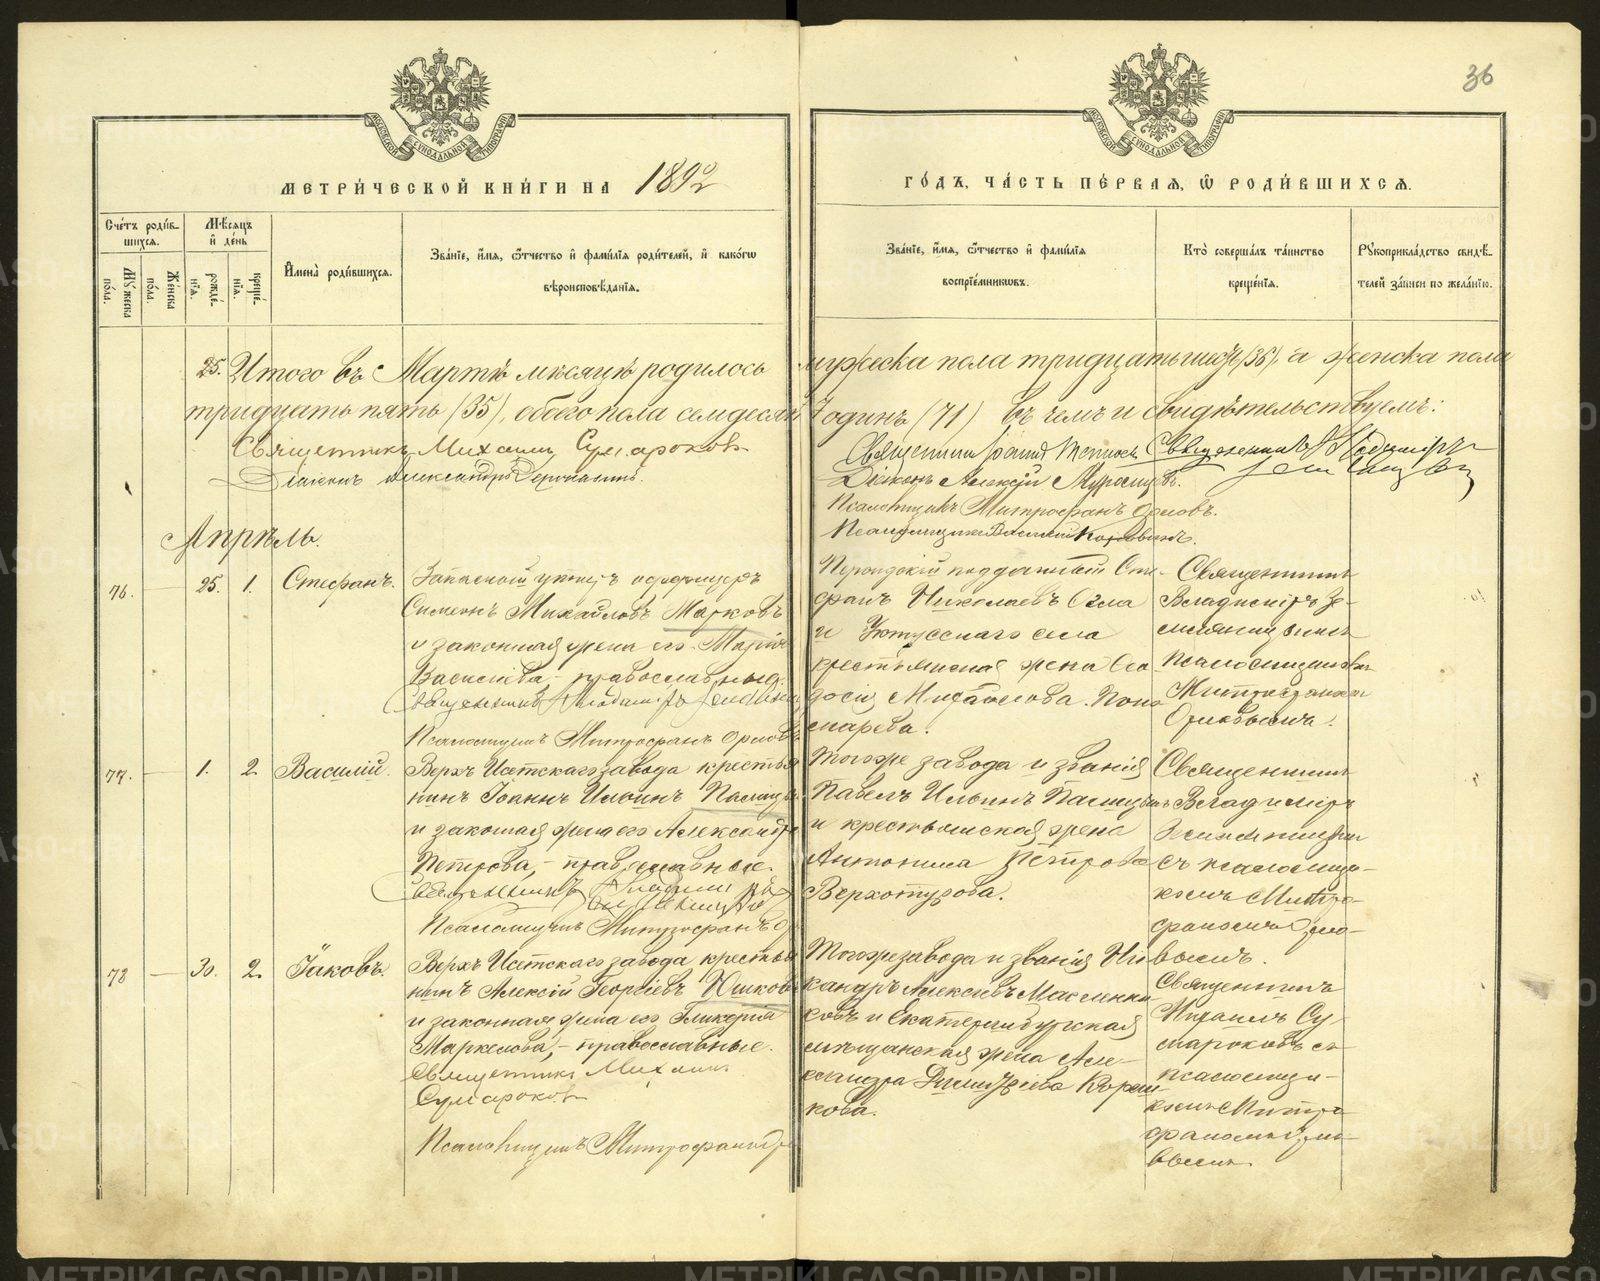 36
МОСКОВСКОЙ СѴНОДАЛЬНОЙ ТИПОГРАФІИ
МОСКОВСКОЙ СѴНОДАЛЬНОЙ ТИПОГРАФІИ
МЕТРИ́ЧЕСКОЙ КНИ́ГИ НА 1892
ГО́ДЪ, ЧА́СТЬ ПЕ́РВАЯ, Ѡ РОДИ́ВШИХСЯ.
Сче́тъ роди́вшихся.
Мꙋ́жеска по́ла.
Же́нска по́ла.
Мѣ́сяцъ и де́нь
рожде́нія.
креще́нія.
Имена̀ роди́вшихся.
Зва́ніе, и́мя, ѻ́тчество и фами́лія роди́телей, и како́гѡ вѣроисповѣ́данія.
Зва́ніе, и́мя, ѻ́тчество и фами́лія воспріе́мникѡвъ.
Кто̀ соверша́лъ та́инство креще́нія.
Рꙋкоприкла́дство свидѣ́телей за́писи по жела́нію.
25. Итого въ Мартѣ мѣсяцѣ родилось мужеска пола тридцать шесть (36), а женска пола
тридцать пять (35), обоего пола семдесятъ одинъ (71) въ чемъ и свидѣтельствуемъ:
Священникъ Михаилъ Сумароковъ
Діаконъ Александръ
Священникъ Священникъ Владиміръ
Діаконъ Алексій
Псаломщикъ Митрофанъ Орловъ.
Псаломщикъ Василій
Апрѣль.
76. — 25. 1. Стефанъ.
Запасной унтеръ офицеръ
Симеонъ Михайловъ Марковъ
и законная жена его Марія
Васильева, православные.
Священникъ Владиміръ
Псаломщикъ Митрофанъ Орловъ
Персидскій подданный Сте-
фанъ Николаевъ
и Уктусскаго села
крестьянская жена Ѳео
досія Михайлова Поно
марева.
Священникъ
Владиміръ Зе-
мляницынъ
Псаломщикомъ
Митрофаномъ
Орловымъ.
77. — 1. 2. Василій.
Верхъ Исетскаго завода крестья
нинъ Іоаннъ Ильинъ
и законная жена его Александра
Петрова, – православные.
Священникъ Владиміръ
Псаломщикъ Митрофанъ Ор
Тогоже завода и званія
Павелъ Ильинъ
и крестьянская жена
Антонина Петрова
Верхотурова.
Священникъ
Владиміръ
Земляницынъ
съ псаломщи-
комъ Митро-
фаномъ Орло-
вымъ.
78 — 30. 2. Іаковъ.
Верхъ Исетскаго завода крестья
нинъ Алексій Георгіевъ Юшковъ
и законная жена его Гликерія
Маркелова, – православные.
Священникъ Михаилъ
Сумароковъ
Псаломщикъ Митрофанъ Ор
Тогоже завода и званія Ни
кандръ Алексѣевъ Масленни
ковъ и Екатеринбургская
мѣщанская жена Але-
ксандра Димитріева
кова.
Священникъ
Михаилъ Су-
мароковъ съ
псаломщи-
комъ Митро
фаномъ Орло-
вымъ.
METRIKI.GASO-URAL.RU